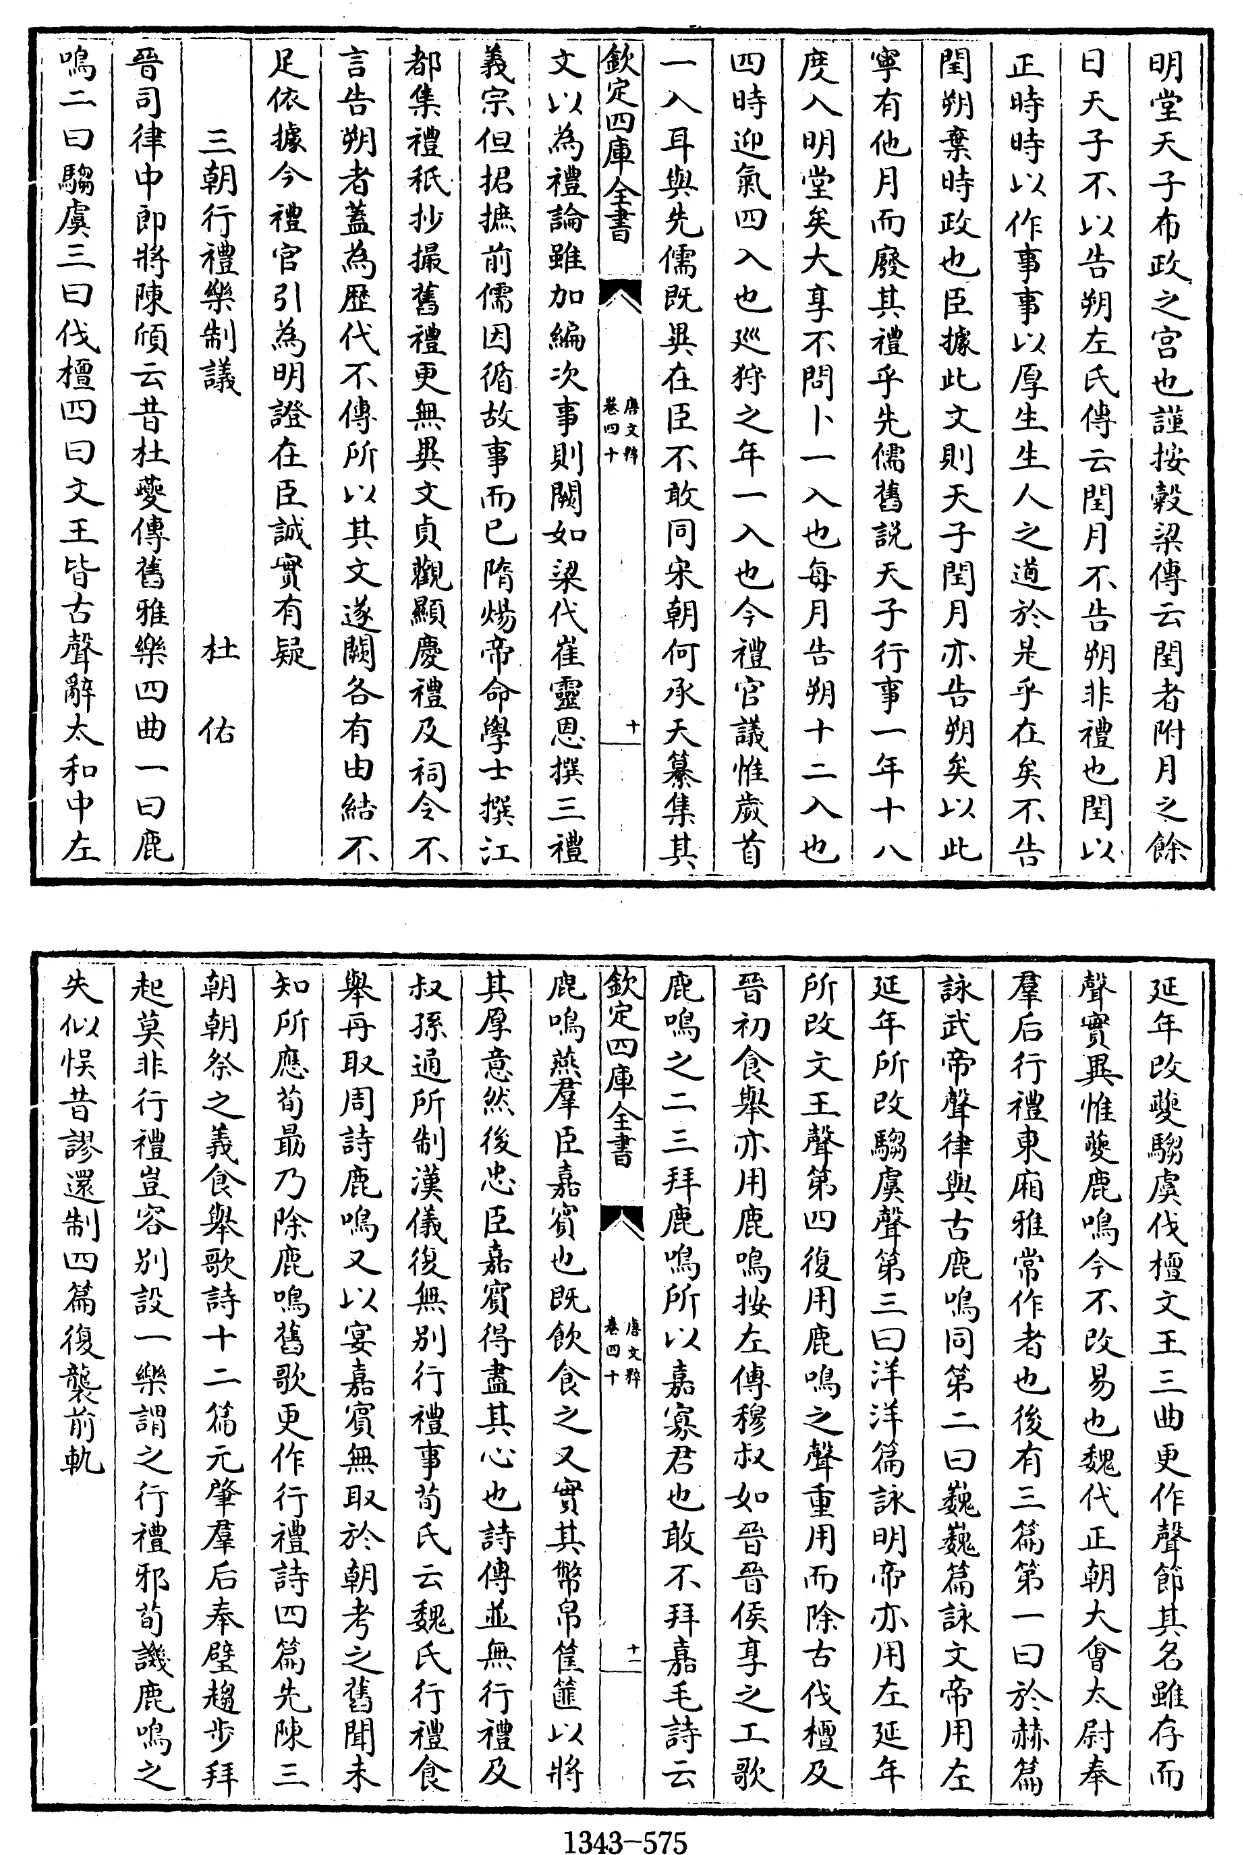 明堂天子布政之宫也謹按穀梁傳云閏者附月之餘
日天子不以告朔左氏傳云閏月不告朔非禮也閏以
正時時以作事事以厚生生人之道於是乎在矣不告
閏朔棄時政也臣據此文則天子閏月亦告朔矣以此
寧有他月而廢其禮乎先儒舊説天子行事一年十八
度入明堂矣大享不問卜一入也每月告朔十二入也
四時迎氣四入也廵狩之年一入也今禮官議惟歲首
一入耳與先儒既異在臣不敢同宋朝何承天纂集其
欽定四庫全書
唐文粹
卷四十
十
文以為禮論雖加編次事則闕如梁代崔靈恩撰三禮
義宗但捃摭前儒因循故事而已隋煬帝命學士撰江
都集禮秖抄撮舊禮更無異文貞觀顯慶禮及祠令不
言告朔者蓋為歴代不傳所以其文遂闕各有由結不
足依據今禮官引為明證在臣誠實有疑
三朝行禮樂制議
杜佑
晉司律中郎將陳頎云昔杜夔傳舊雅樂四曲一曰鹿
鳴二曰騶虞三曰伐檀四曰文王皆古聲辭太和中左
延年改夔騶虞伐檀文王三曲更作聲節其名雖存而
聲實異惟夔鹿鳴今不改易也魏代正朝大會太尉奉
羣后行禮東廂雅常作者也後有三篇第一曰於赫篇
詠武帝聲律與古鹿鳴同第二曰巍巍篇詠文帝用左
延年所改騶虞聲第三曰洋洋篇詠明帝亦用左延年
所改文王聲第四復用鹿鳴之聲重用而除古伐檀及
晉初食舉亦用鹿鳴按左傳穆叔如晉晉侯享之工歌
鹿鳴之二三拜鹿鳴所以嘉寡君也敢不拜嘉毛詩云
欽定四庫全書
唐文粹
卷四十
十一
鹿鳴燕羣臣嘉賓也既飲食之又實其幣帛筐篚以將
其厚意然後忠臣嘉賓得盡其心也詩傳並無行禮及
叔孫通所制漢儀復無別行禮事荀氏云魏氏行禮食
舉再取周詩鹿鳴又以宴嘉賓無取於朝考之舊聞未
知所應荀勗乃除鹿鳴舊歌更作行禮詩四篇先陳三
朝朝祭之義食舉歌詩十二篇元肇羣后奉璧趨步拜
起莫非行禮豈容別設一樂謂之行禮邪荀譏鹿鳴之
失似悞昔謬還制四篇復襲前軌
1343-575